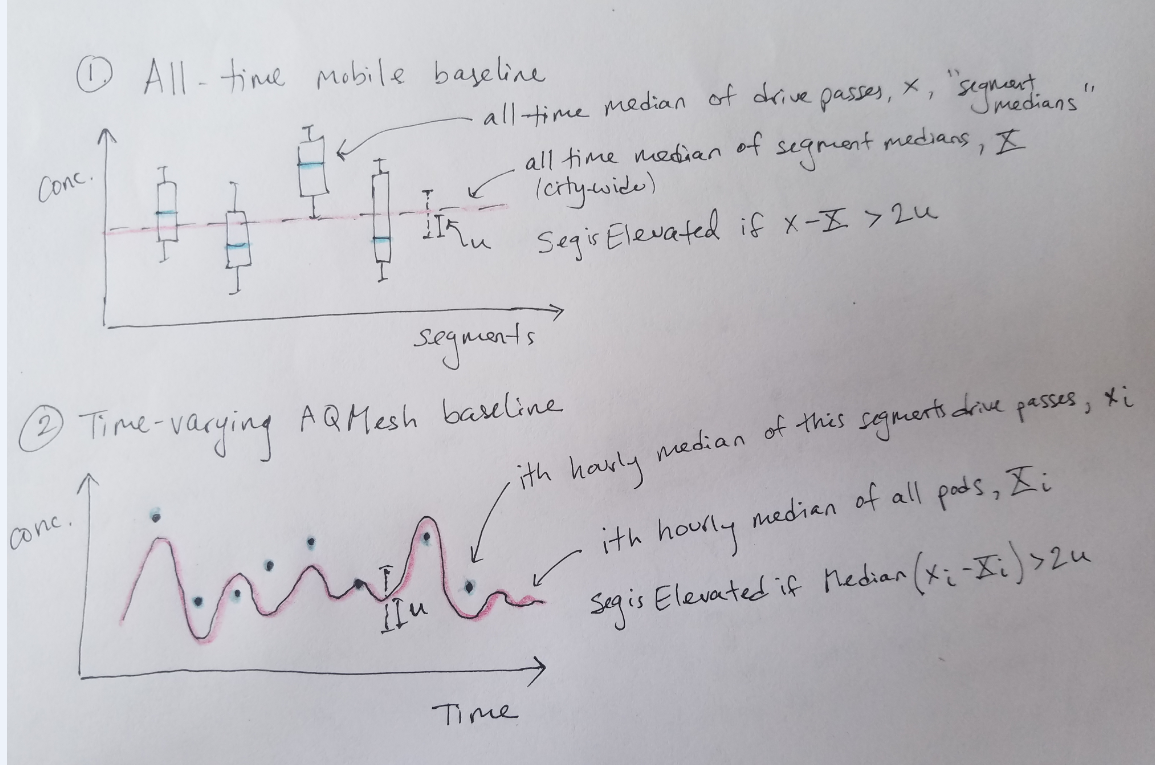 ① All-time mobile baseline
all-time median of drive passes, x, "segment medians"
conc.
all time median of segment medians, X
(city-wide)
u
Seg is Elevated if x-X > 2u
segments
② Time-varying AQMesh baseline
ith hourly median of this segments drive passes, xi
conc.
ith hourly median of all pods, Xi
u
Seg is Elevated if Median (xi-Xi) > 2u
Time